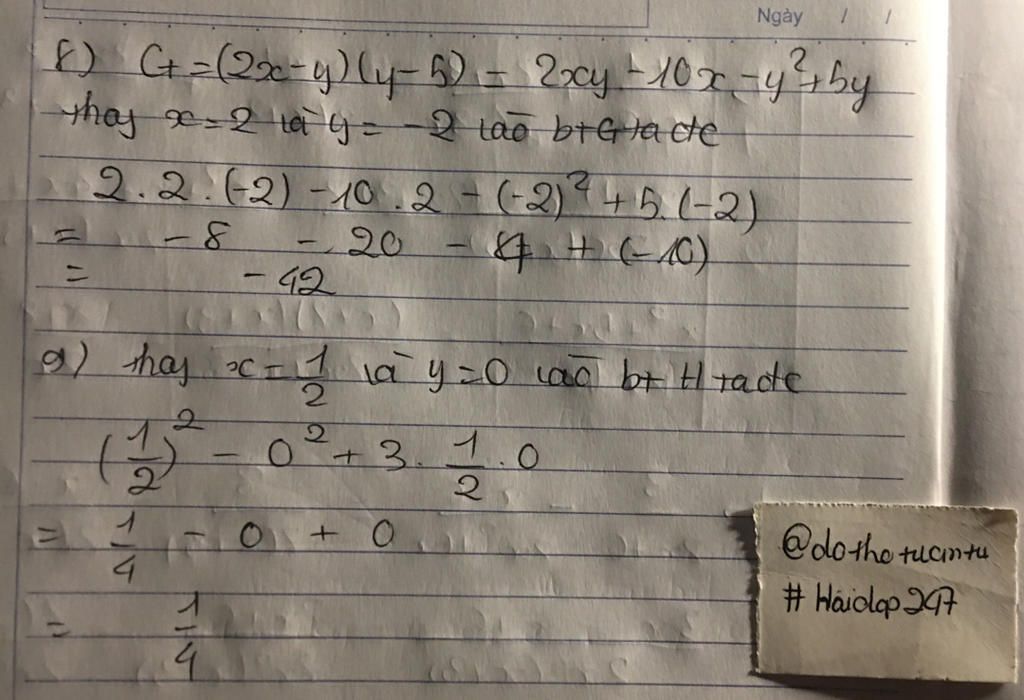 Ngày / /
f) G = (2x-y)(y-5) = 2xy-10x-y²+5y
thay x=2 và y= -2 vào bt G ta đc
2.2.(-2) -10.2 -(-2)²+5.(-2)
= -8 - 20 - 4 + (-10)
= -42
g) thay x= 1/2 và y=0 vào bt H ta đc
(1/2)² - 0² + 3. 1/2 .0
= 1/4 - 0 + 0
= 1/4
@dothotucmtu
# Hoidap247